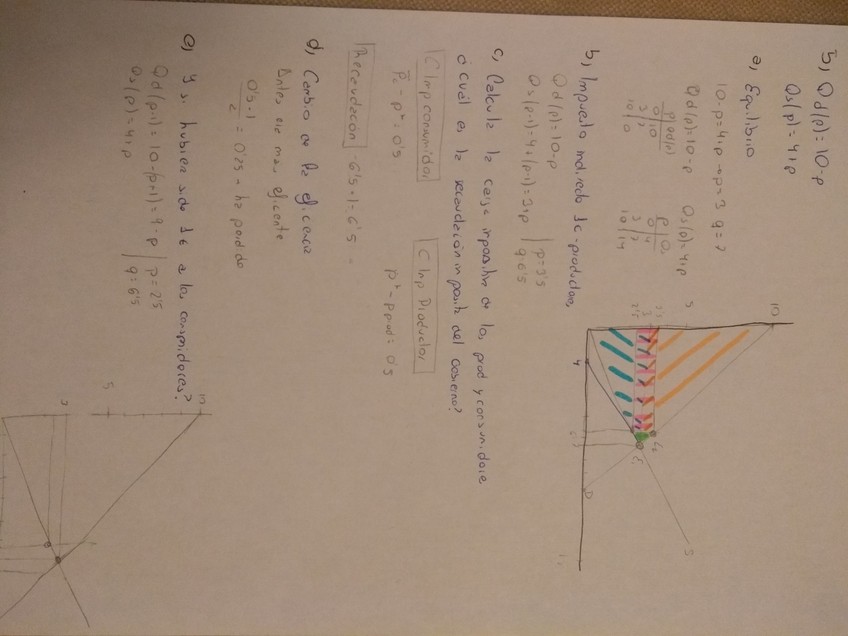 5) Qd(p)=10-p
Qs(p)=4+p
a) Equilibrio
10-p=4+p → p=3 q=7
Qd(p)=10-p Qs(p)=4+p
p | Qd(p)
0 | 10
3 | 7
10 | 0
p | Qs
0 | 4
3 | 7
10 | 14
b) Impuesto indirecto 1€-productores
Qd(p)=10-p
Qs(p-1)=4+(p-1)=3+p | p=3'5
q=6'5
c) Calcula la carga impositiva de los prod y consumidores
¿cuál es la recaudación por parte del gobierno?
C Imp consumidor
C Imp Productor
Pc - p* = 0'5
p* - p prod = 0'5
Recaudación - 6'5·1 = 6'5
d) Cambio de la eficiencia
Antes era más eficiente
0'5·1/2 = 0'25 → ha perdido
e) Y si hubiera sido 1€ a los consumidores?
Qd(p+1)=10-(p+1)=9-p | p=2'5
Qs(p)=4+p | q=6'5
10
5
3
4
D
S
10
5